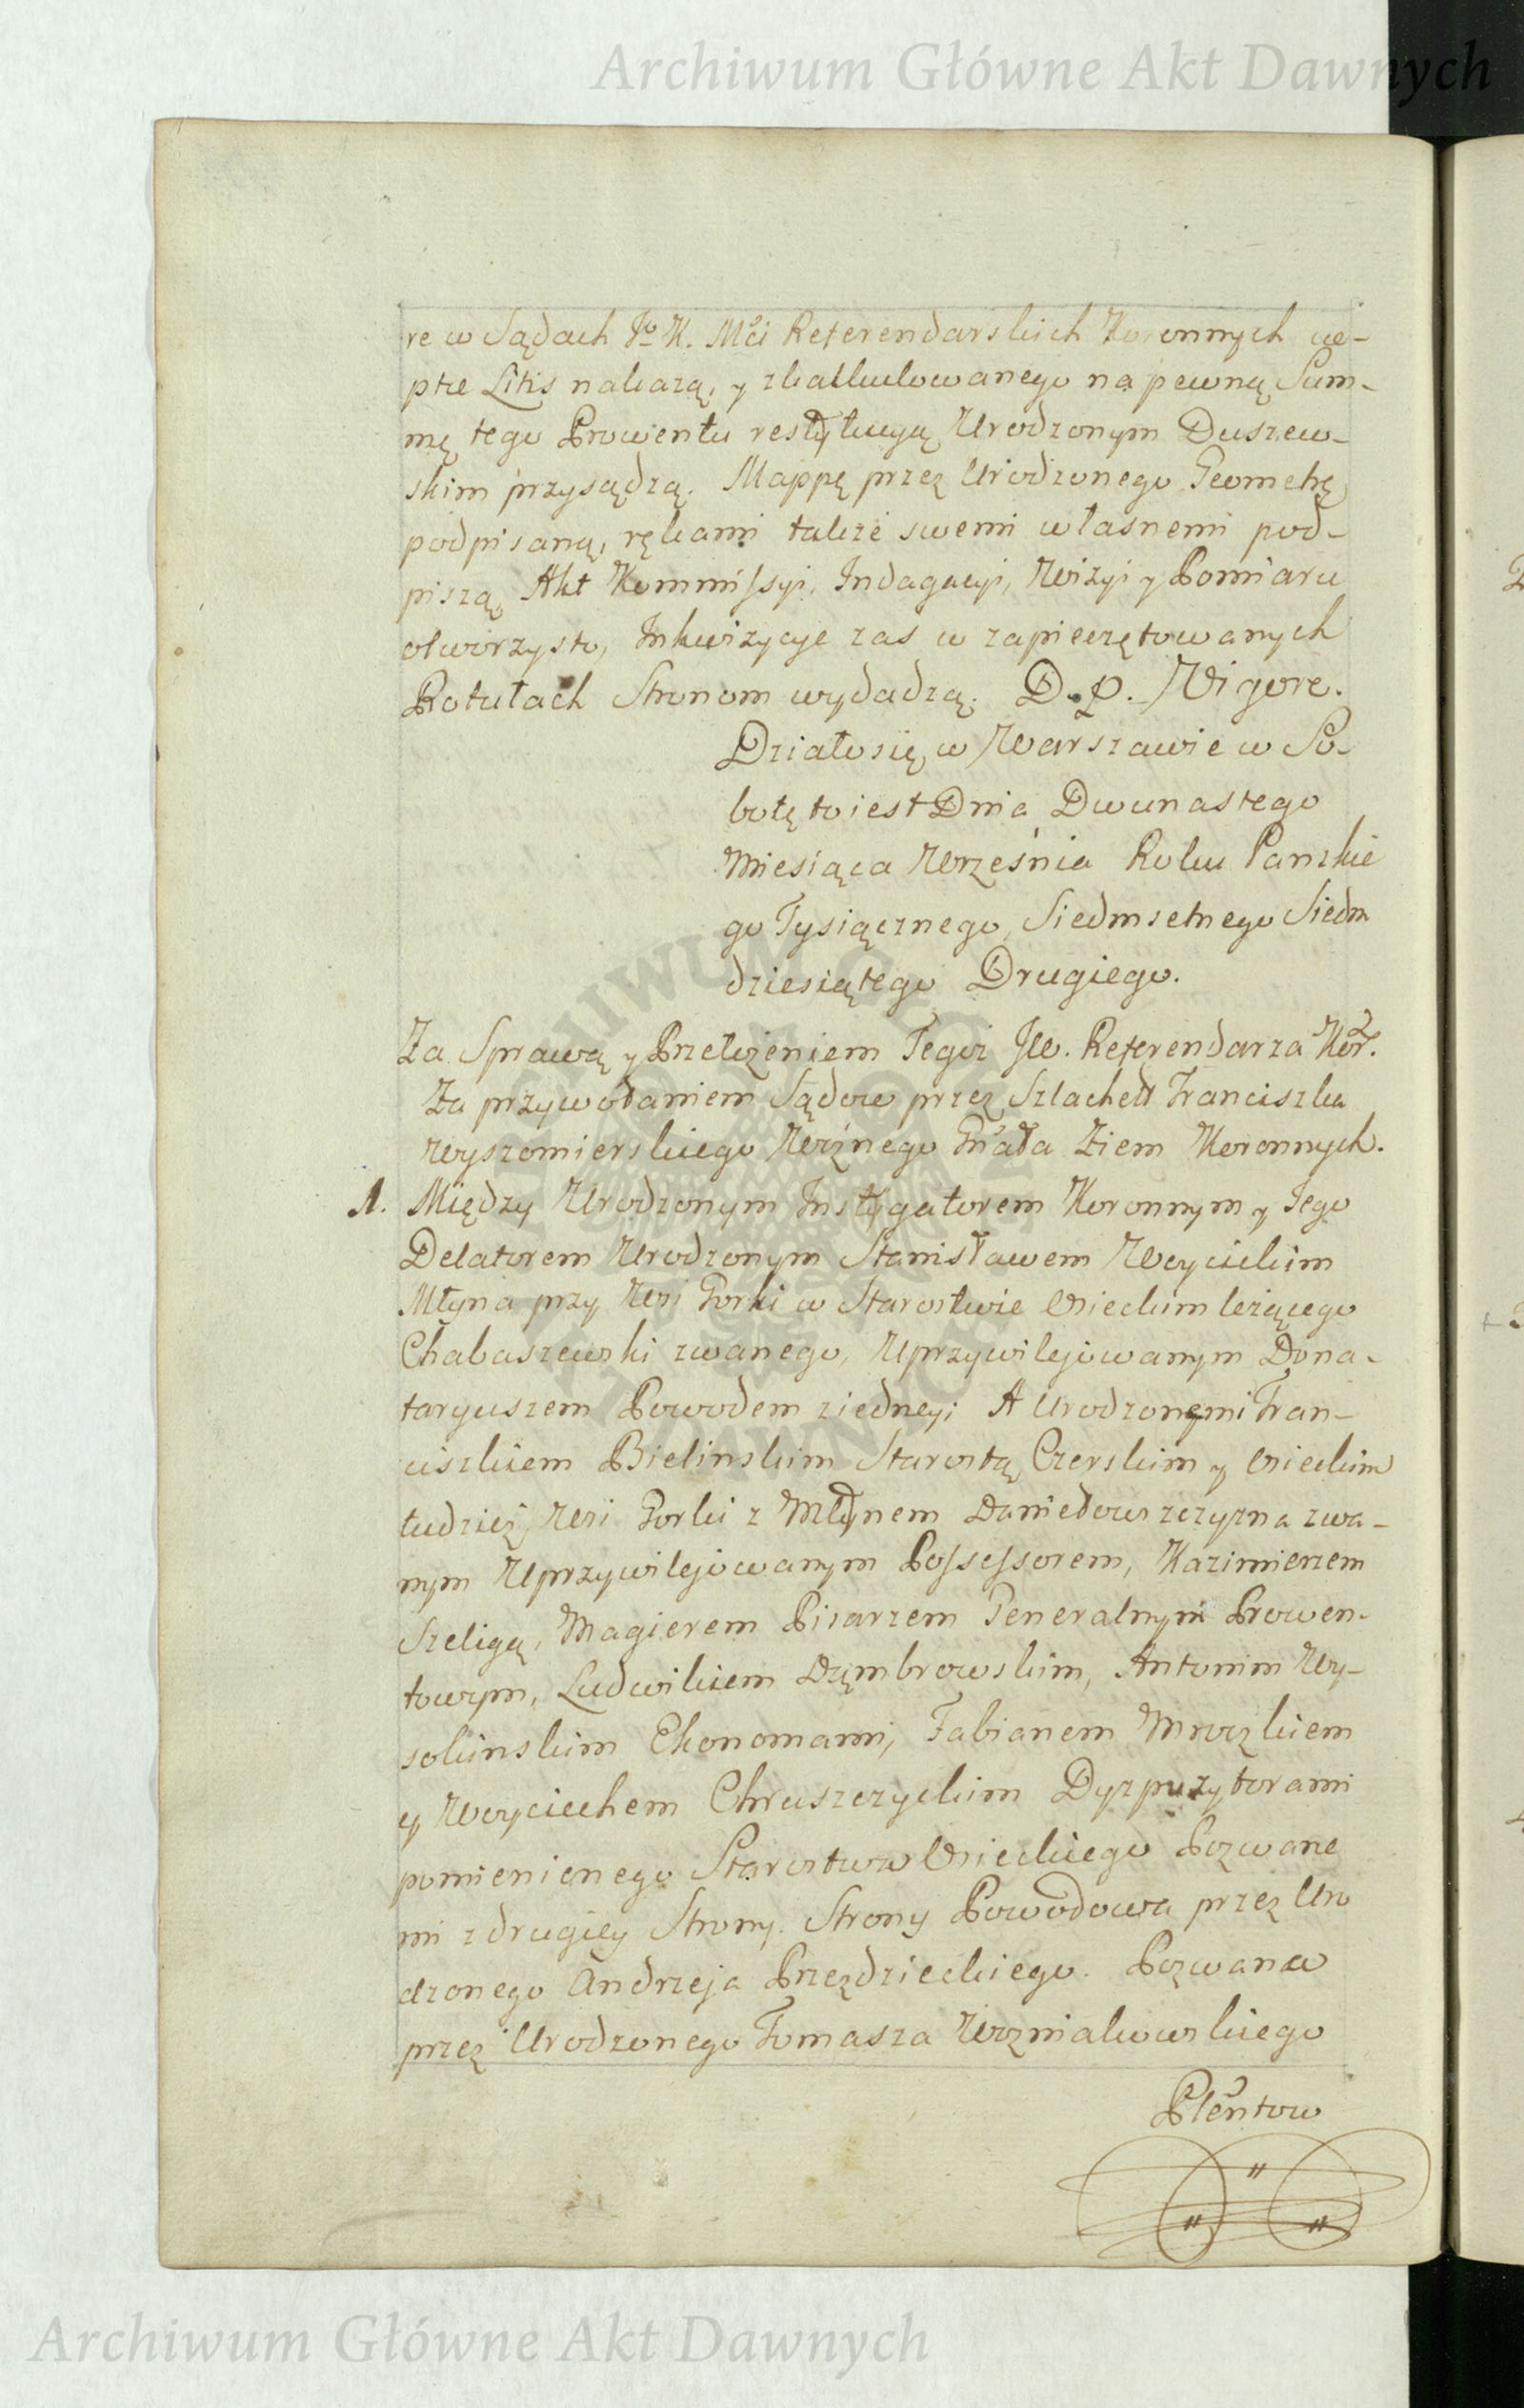 Archiwum Główne Akt Dawnych
re w Sądach Jo K. Mci Referendarskich Koronnych ce-
ptæ Litis nakażą, y zkalkulowanego na pewną Sum-
mę tego Prowentu restytucyą Urodzonym Duszew-
skim przysądzą. Mappę przez Urodzonego Geometrę
podpisaną, rękami także swemi własnemi pod-
piszą, Akt Kommissyi, Indagacyi, Wizyi y Pomiaru
otworzysto, Inkwizycye zas w zapieczętowanych
Rotułach Stronom wydadzą. D. p. Vigore.
Działo się w Warszawie w So-
botę to iest Dnia Dwunastego
Miesiąca Września Roku Panskie
go Tysiącznego, Siedmsetnego Siedm
dziesiątego Drugiego.
Za Sprawą y Przełożeniem Tegoż JW. Referendarza Kor.
Za przywołaniem Sądow przez Szlachett Franciszka
Wyszomierskiego Woźnego Gnała Ziem Koronnych.
1. Między Urodzonym Instygatorem Koronnym y Jego
Delatorem Urodzonym Stanisławem Woycickim
Młyna przy Wsi Gorki w Starostwie Osieckim leżącego
Chabaszewski zwanego, Uprzywilejowanym Dona-
taryuszem Powodem z iedney; A Urodzonemi Fran-
ciszkiem Bielinskim Starostą Czerskim y Osieckim
tudzież Wsi Gorki z Młynem Daniełowszczyzna zwa-
nym Uprzywilejowanym Possessorem, Kazimierzem
Szeligą, Magierem Pisarzem Generalnym Prowen-
towym, Ludwikiem Dąmbrowskim, Antonim Wy-
sokinskim Ekonomami, Fabianem Mroczkiem
y Woyciechem Chruszczyckim Dyzpozytorami
pomienionego Starostwa Osieckiego Pozwane
mi z drugiey Strony. Strony Powodowa przez Uro
dzonego Andrzeja Przezdzieckiego. Pozwana
przez Urodzonego Tomasza Wozniakowskiego
Plentow
Archiwum Główne Akt Dawnych